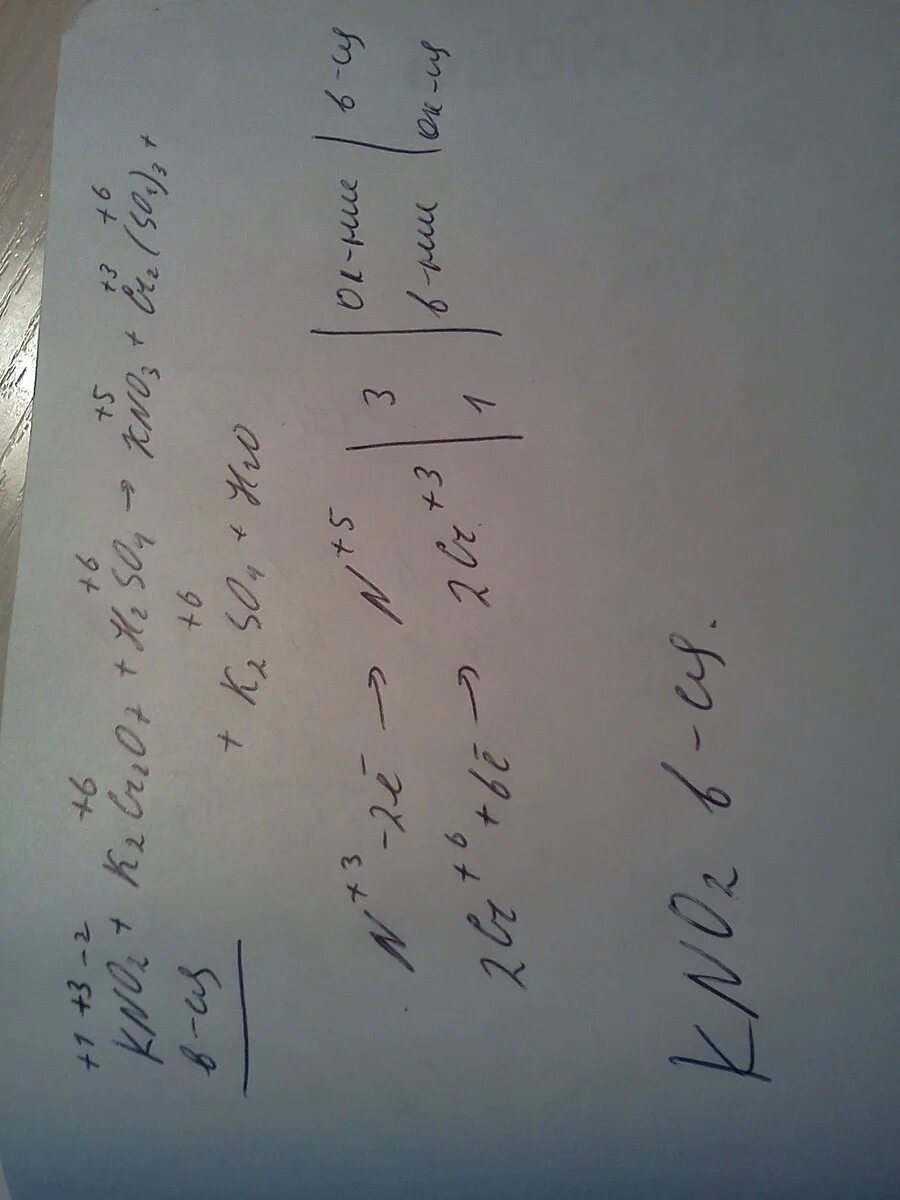 +1 +3 -2 +6 +6 +5 +3 +6
KNO2 + K2Cr2O7 + H2SO4 → KNO3 + Cr2(SO4)3 +
в-ль
+6
+ K2SO4 + H2O
N+3 -2ē → N+5 | 3 | ок-ние | в-ль
2Cr+6 +6ē → 2Cr+3 | 1 | в-ние | ок-ль
KNO2 в-ль.